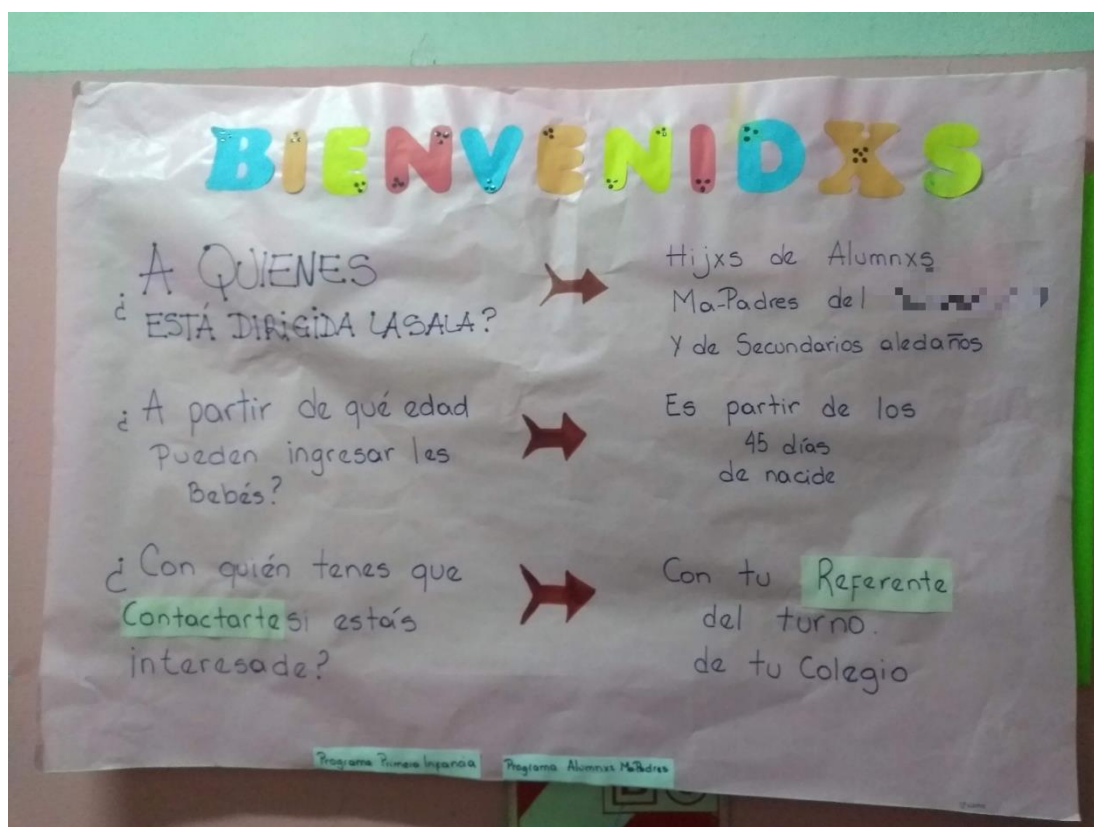 BIENVENIDXS
¿A QUIENES
ESTÁ DIRIGIDA LA SALA?
Hijxs de Alumnxs
Ma-Padres del
Y de Secundarios aledaños
¿A partir de qué edad
Pueden ingresar les
Bebés?
Es partir de los
45 días
de nacide
¿Con quién tenes que
Contactarte si estás
interesade?
Con tu Referente
del turno.
de tu Colegio
Programa Primera Infancia
Programa Alumnxs MaPadres